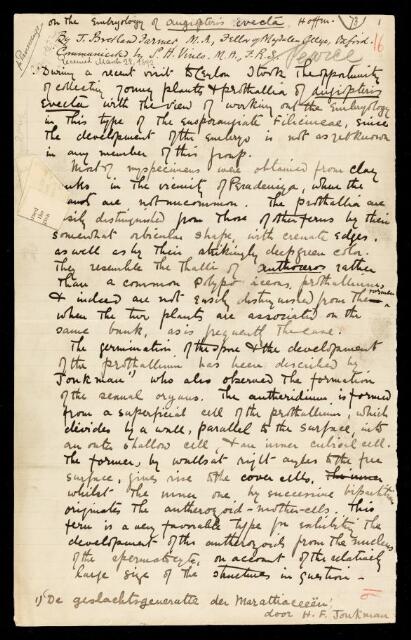 on the Embryology of Angiopteris evecta, Hoffm.
By J. Bretland Farmer M.A., Fellow of Magdalen College, Oxford.
Communicated by S. H. Vines, M.A., F.R.S.
Received March 22, 1892
During a recent visit to Ceylon I took the opportunity
of collecting young plants & prothallia of Angiopteris
Evecta with the view of working out the Embryology
in this type of the Eusporangiate Filicineae, since
the development of the Embryo is not as yet known
in any member of this group.
Most of my specimens were obtained from clay
in the vicinity of Peradeniya, where the
are not uncommon. The prothallia are
distinguished from those of other ferns by their
somewhat orbicular shape, with crenate edges,
as well as by their strikingly deep green color.
They resemble the thalli of Anthoceros rather
than a common prothallium
& indeed are not easily distinguished from the former
when the two plants are associated on the
same bank, as is frequently the case.
The germination of the spore & the development
of the prothallium has been described by
Jonkman¹⁾ who also observed the formation
of the sexual organs. The antheridium is formed
from a superficial cell of the prothallium, which
divides by a wall, parallel to the surface, into
an outer shallow cell, & an inner cubical cell.
The former, by walls at right angles to the free
surface, gives rise to the cover cells, The inner
whilst the inner one, by successive bipartitions
originates the antherozoid-mother-cells. This
fern is a very favorable type for studying the
development of the antherozoids from the nucleus
of the spermatocyte, on account of the relatively
large size of the structures in question.
1) De geslachtsgeneratie der Marattiaceeën
door H. F. Jonkman